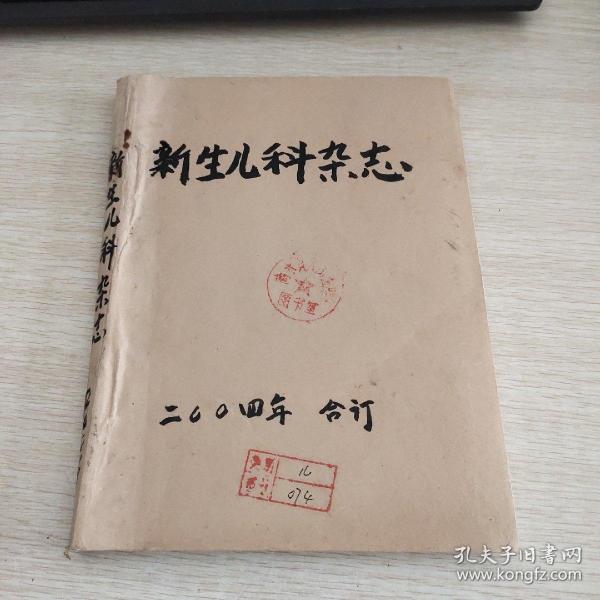 新生儿科杂志
图书室
二〇〇四年 合订
16
074
新生儿科杂志
孔夫子旧书网
www.kongfz.com